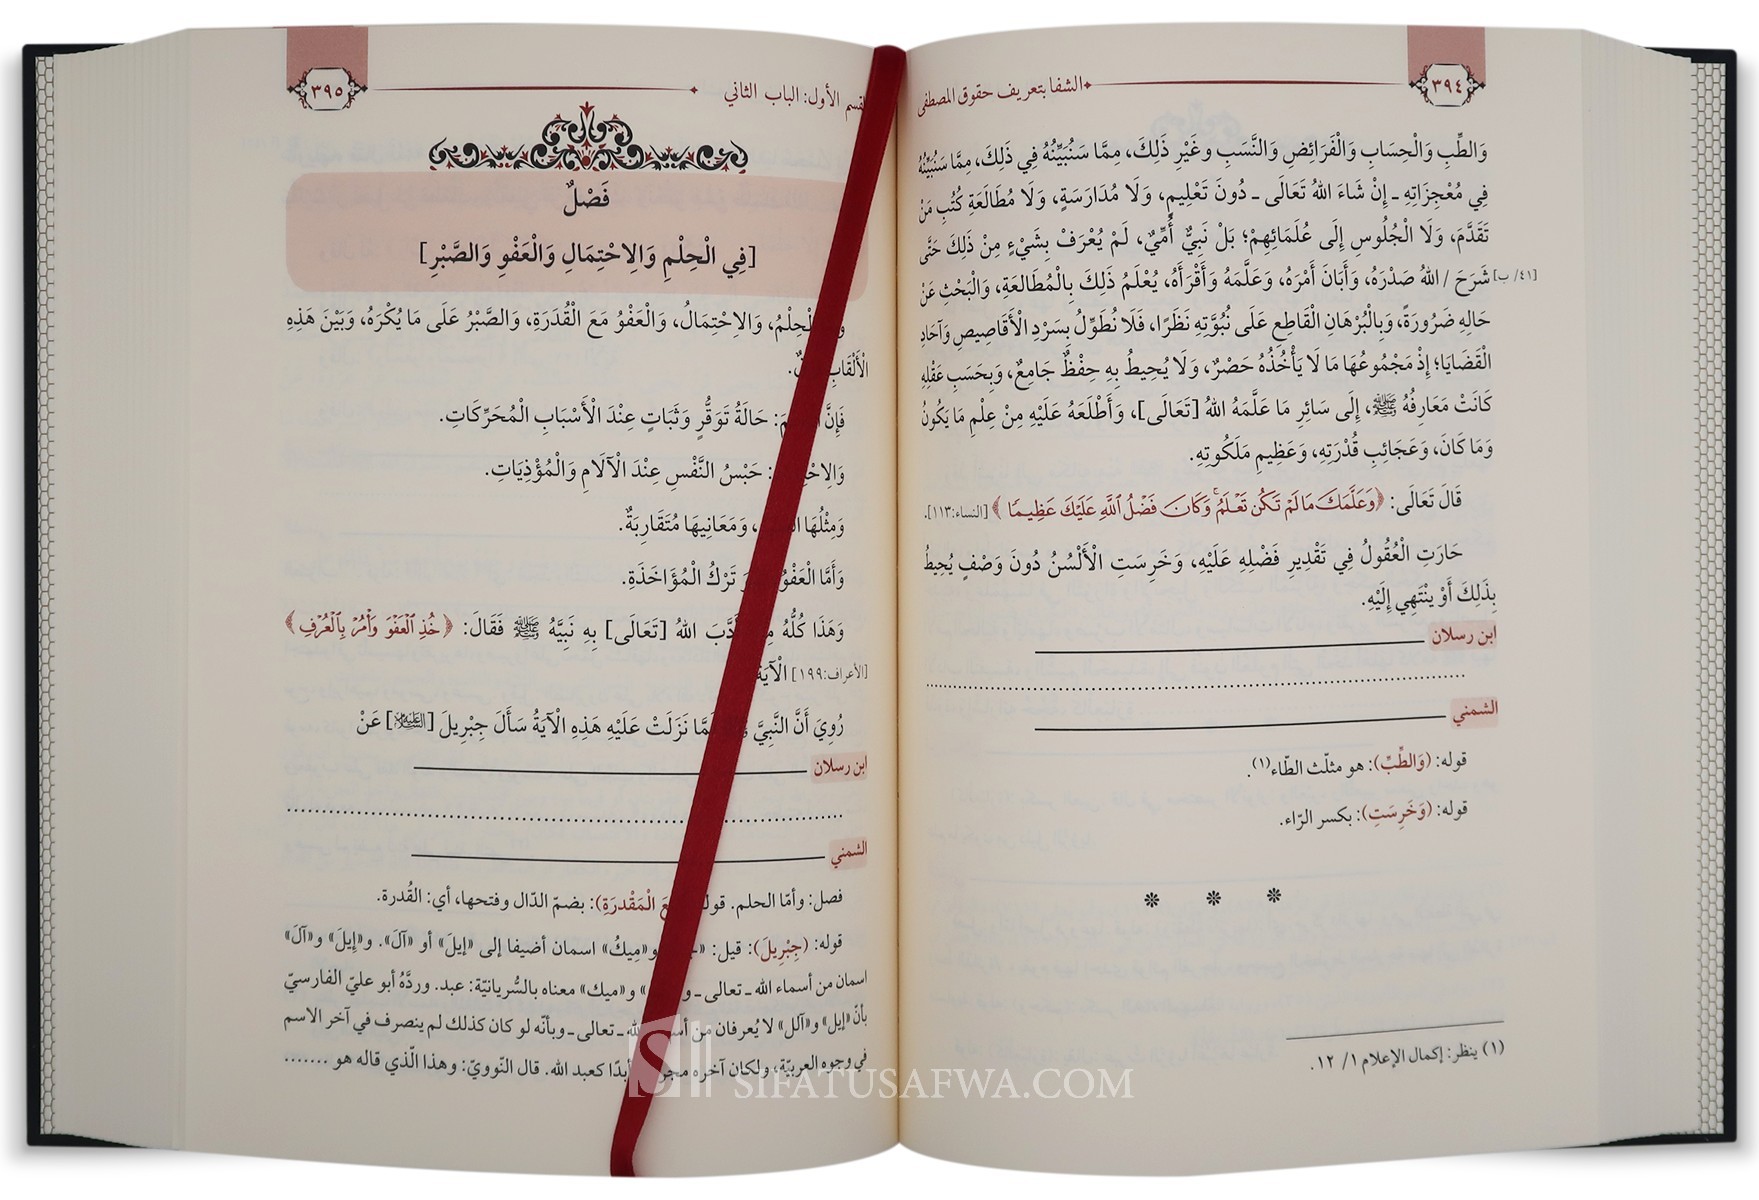 ٣٩٤
الشفا بتعريف حقوق المصطفى
وَالطِّبِ وَالْحِسَابِ وَالْفَرَائِضِ وَالنَّسَبِ وغَيْرِ ذَلِكَ، مِمَّا سَنُبَيِّنُهُ فِي ذَلِكَ، مِمَّا سَنُبَيِّنُهُ
فِي مُعْجِزَاتِهِ ـ إِنْ شَاءَ اللهُ تَعَالَى ـ دُونَ تَعْلِيمٍ، وَلَا مُدَارَسَةٍ، وَلَا مُطَالَعَةِ كُتُبِ مَنْ
تَقَدَّمَ، وَلَا الْجُلُوسِ إِلَى عُلَمَائِهِمْ؛ بَلْ نَبِيٌّ أُمِّيٌ، لَمْ يُعْرَفْ بِشَيْءٍ مِنْ ذَلِكَ حَتَّى
[٤١/ ب] شَرَحَ / اللهُ صَدْرَهُ، وَأَبَانَ أَمْرَهُ، وَعَلَّمَهُ وَأَقْرَأَهُ، يُعْلَمُ ذَلِكَ بِالْمُطَالَعَةِ، وَالْبَحْثِ عَنْ
حَالِهِ ضَرُورَةً، وَبِالْبُرْهَانِ الْقَاطِعِ عَلَى نُبُوَّتِهِ نَظَرًا، فَلَا نُطَوِّلُ بِسَرْدِ الْأَقَاصِيصِ وَآحَادِ
الْقَضَايَا؛ إِذْ مَجْمُوعُهَا مَا لَا يَأْخُذُهُ حَصْرٌ، وَلَا يُحِيطُ بِهِ حِفْظٌ جَامِعٌ، وَبِحَسَبِ عَقْلِهِ
كَانَتْ مَعَارِفُهُ ﷺ، إِلَى سَائِرِ مَا عَلَّمَهُ اللهُ [تَعَالَى]، وَأَطْلَعَهُ عَلَيْهِ مِنْ عِلْمِ مَا يَكُونُ
وَمَا كَانَ، وَعَجَائِبِ قُدْرَتِهِ، وَعَظِيمِ مَلَكُوتِهِ.
قَالَ تَعَالَى: ﴿وَعَلَّمَكَ مَا لَمْ تَكُن تَعْلَمُ ۚ وَكَانَ فَضْلُ ٱللَّهِ عَلَيْكَ عَظِيمًا﴾ [النساء:١١٣].
حَارَتِ الْعُقُولُ فِي تَقْدِيرِ فَضْلِهِ عَلَيْهِ، وَخَرِسَتِ الْأَلْسُنُ دُونَ وَصْفٍ يُحِيطُ
بِذَلِكَ أَوْ يَنْتَهِي إِلَيْهِ.
ابن رسلان
الشمني
قوله: (وَالطِّبِّ): هو مثلّث الطّاء(١).
قوله: (وَخَرِسَتِ): بكسر الرّاء.
(١) ينظر: إكمال الإعلام ١/ ١٢.
القسم الأول: الباب الثاني
٣٩٥
فَصْلٌ
[فِي الْحِلْمِ وَالِاحْتِمَالِ وَالْعَفْوِ وَالصَّبْرِ]
الْحِلْمُ، وَالِاحْتِمَالُ، وَالْعَفْوُ مَعَ الْقُدَرَةِ، وَالصَّبْرُ عَلَى مَا يُكْرَهُ، وَبَيْنَ هَذِهِ
الْأَلْقَابِ
فَإِنَّ حَالَةُ تَوَقُّرٍ وَثَبَاتٍ عِنْدَ الْأَسْبَابِ الْمُحَرِّكَاتِ.
حَبْسُ النَّفْسِ عِنْدَ الْآلَامِ وَالْمُؤْذِيَاتِ.
وَمِثْلُهَا وَمَعَانِيهَا مُتَقَارِبَةٌ.
وَأَمَّا الْعَفْوُ تَرْكُ الْمُؤَاخَذَةِ.
وَهَذَا كُلُّهُ أَدَّبَ اللهُ [تَعَالَى] بِهِ نَبِيَّهُ ﷺ فَقَالَ: ﴿خُذِ ٱلْعَفْوَ وَأْمُرْ بِٱلْعُرْفِ﴾
[الأعراف:١٩٩] الْآيَةَ
رُوِيَ أَنَّ النَّبِيَّ لَمَّا نَزَلَتْ عَلَيْهِ هَذِهِ الْآيَةُ سَأَلَ جِبْرِيلَ [عليه السلام] عَنْ
ابن رسلان
الشمني
فصل: وأمّا الحلم. قوله الْمَقْدرَةِ): بضمّ الدّال وفتحها، أي: القُدرة.
قوله: (جِبْرِيلَ): قيل: و«مِيكُ» اسمان أضيفا إلى «إيلَ» أو «آلَ». و«إيلَ» و«آلَ»
اسمان من أسماء الله ـ تعالى ـ و«ميك» معناه بالسُّريانيّة: عبد. وردَّهُ أبو عليّ الفارسيّ
بأنّ «إيل» و«آلل» لا يُعرفان من الله ـ تعالى ـ وبأنّه لو كان كذلك لم ينصرف في آخر الاسم
في وجوه العربيّة، ولكان آخره أبدًا كعبد الله. قال النّوويّ: وهذا الّذي قاله هو .......
SIFATUSAFWA.COM